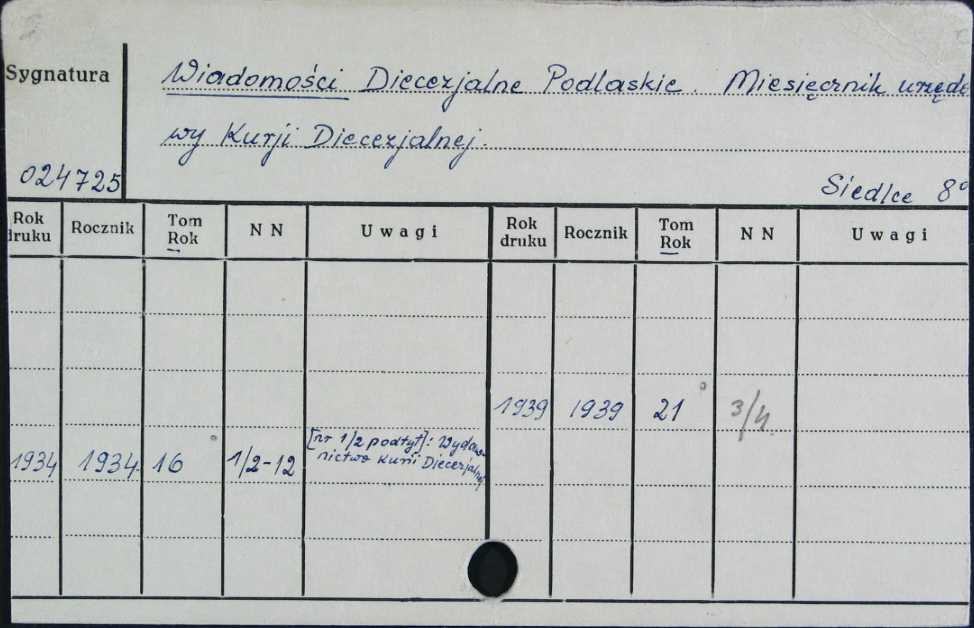 Sygnatura
Wiadomości Diecezjalne Podlaskie. Miesięcznik urzędo
wy Kurji Diecezjalnej.
024725
Siedlce 8°
Rok druku Rocznik Tom Rok N N Uwagi Rok druku Rocznik Tom Rok N N Uwagi
1939 1939 21 3/4
1934 1934 16 1/2-12 [nr 1/2 podtyt]: Wydaw-
nictwo Kurii Diecezjalnej